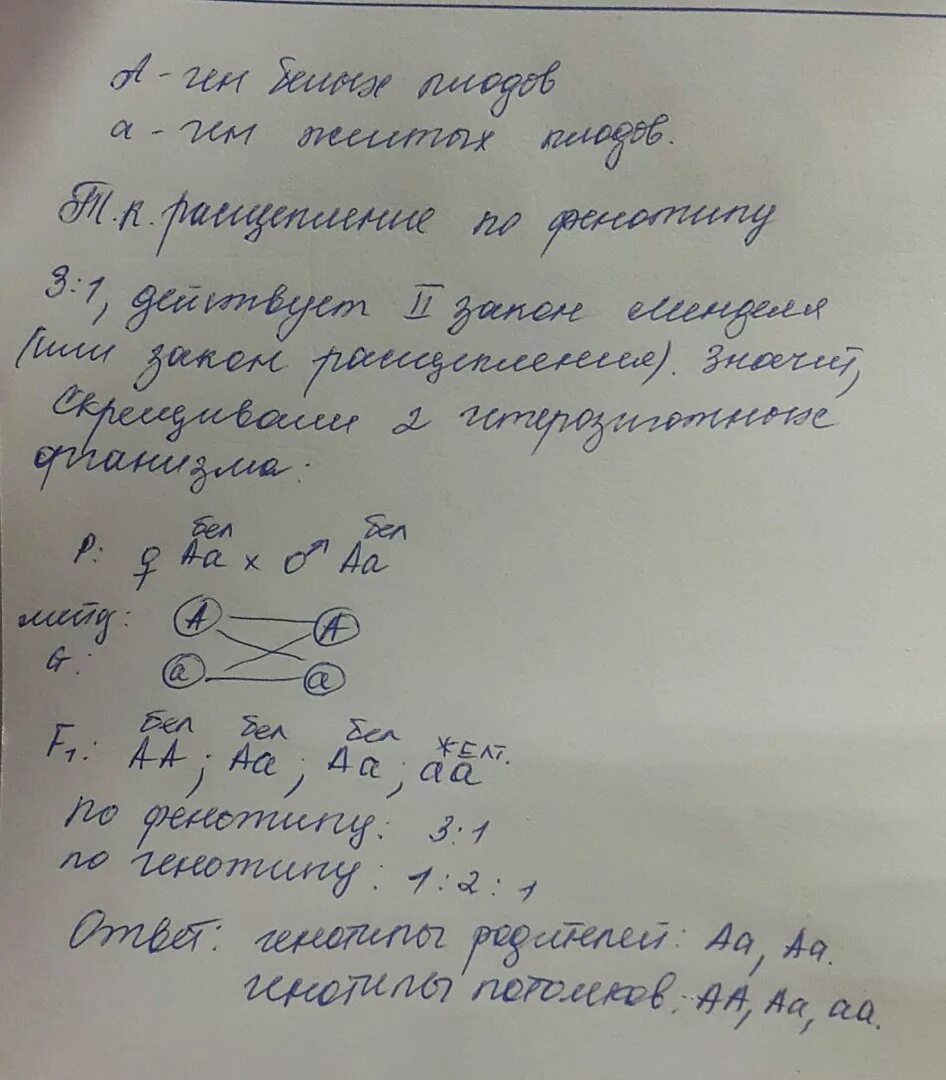 А - ген белых плодов
а - ген желтых плодов.
Т.к. расщепление по фенотипу
3:1, действует II закон Менделя
(или закон расщепления). Значит,
скрещивали 2 гетерозиготных
организма:
бел бел
P: ♀ Aa x ♂ Aa
мейоз: A A
G: a a
бел бел бел ЖЕЛТ.
F₁: AA; Aa; Aa; aa
по фенотипу: 3:1
по генотипу: 1:2:1
Ответ: генотипы родителей: Aa, Aa.
генотипы потомков: AA, Aa, aa.